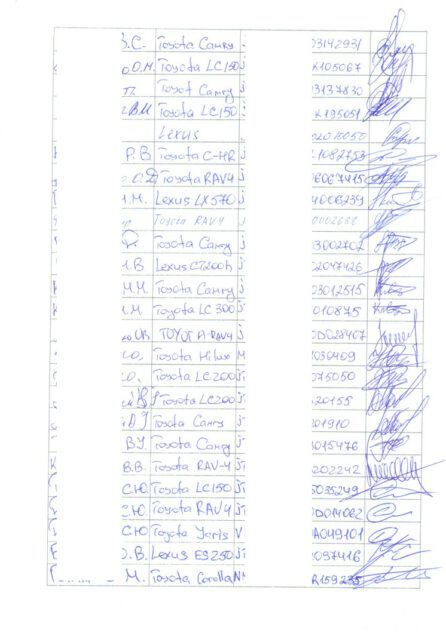 .С. Toyota Camry 03142931
О.М. Toyota LC150 K105067
П. Toyot Camry 03137830
В.И Toyota LC150 K195051
Lexus
Р.В Toyota C-HR 21082753
О.Д Toyota RAV4 06067415
.М. Lexus LX570
Toyota RAV4
Toyota Camry 03002702
.В Lexus CT200h 02047426
М.М. Toyota Camry 03012515
.М. Toyota LC300 010875
TOYOTA-RAV4 0D028407
Ю. Toyota Hilux M 1030409
Ю. Toyota LC200 075050
Toyota LC200 120155
Toyota Camry 101910
ВУ Toyota Camry 3015476
В.В. Toyota RAV-4 202242
С.Ю Toyota LC150 5035249
С.Ю Toyota RAV4 0D014062
С.Ю Toyota Yaris V A049101
О.В. Lexus ES250 1097416
М. Toyota Corolla R159235